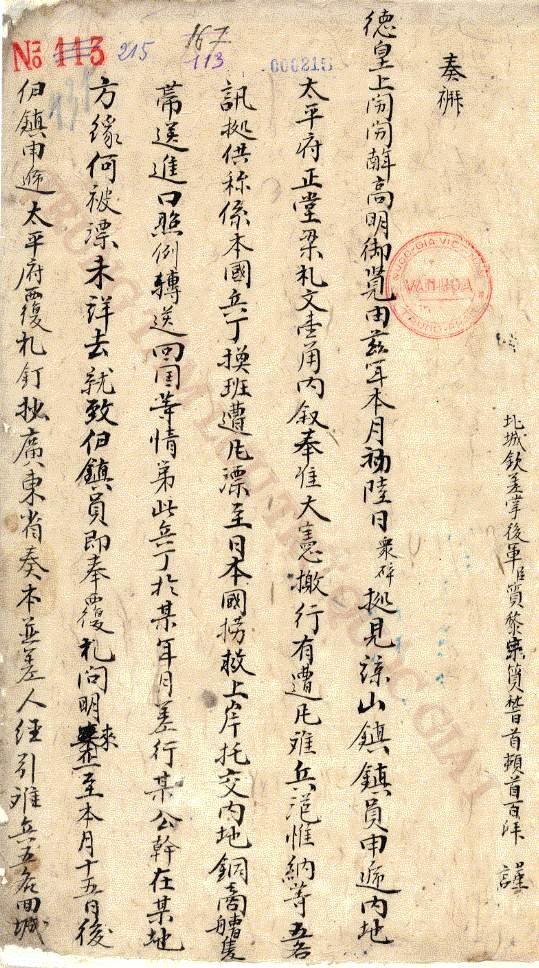 No 113 215
167
113
000215
北城欽差掌後軍臣質黎宗質稽首頓首百拜 謹
奏
德皇上 高明御覽由茲年本月初陸日衆碎拠見諒山鎮鎮員申遞內地
太平府正堂梁札文壹角內叙奉准大憲檄行有遭风难兵范惟納等五名
訊拠供称係本國兵丁換班遭风漂至日本國撈救上岸托交內地銅商艚隻
帶送進口照例轉送回国等情第此兵丁於某年月差行某公幹在某地
方緣何被漂未詳去就致伯鎮員即奉覆札问明來至本月十五日後
伯鎮申遞太平府覆札釘抄廣東省奏本並差人经引难兵五名回城
VAN HOA
TRUNG TÂM LƯU TRỮ QUỐC GIA I